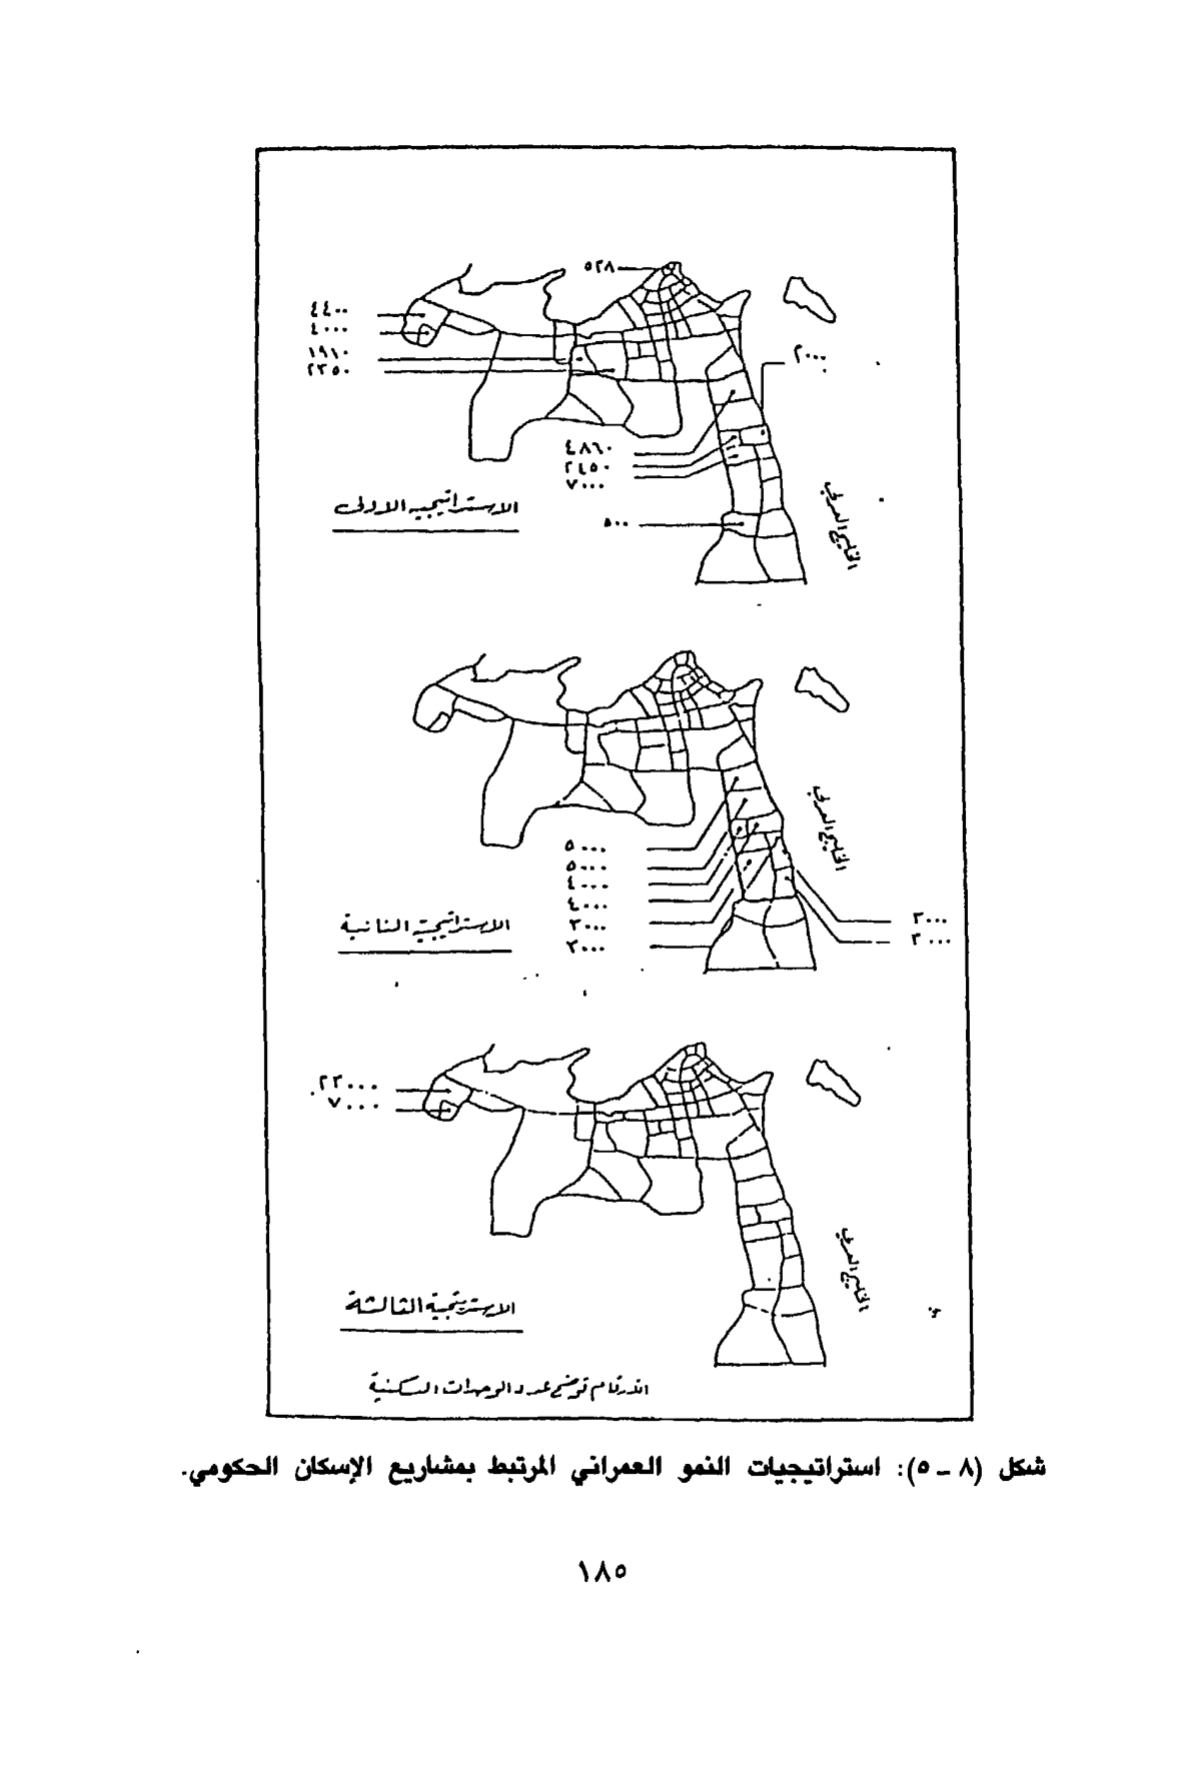 ٥٢٨
٤٤٠٠
٤٠٠٠
١٩١٠
٢٣٥٠
٢٠٠٠
٤٨٦٠
٢٤٥٠
٧٠٠٠
٥٠٠
الاستراتيجيه الاولى
الخليج العربي
٥٠٠٠
٥٠٠٠
٤٠٠٠
٤٠٠٠
٣٠٠٠
٣٠٠٠
٣٠٠٠
٣٠٠٠
الخليج العربي
الاستراتيجية الثانية
٢٣٠٠٠
٧٠٠٠
الخليج العربي
الاستريتجية الثالثة
الارقام توضح عدد الوحدات السكنية
شكل (٨ ــ ٥): استراتيجيات النمو العمراني المرتبط بمشاريع الإسكان الحكومي.
١٨٥